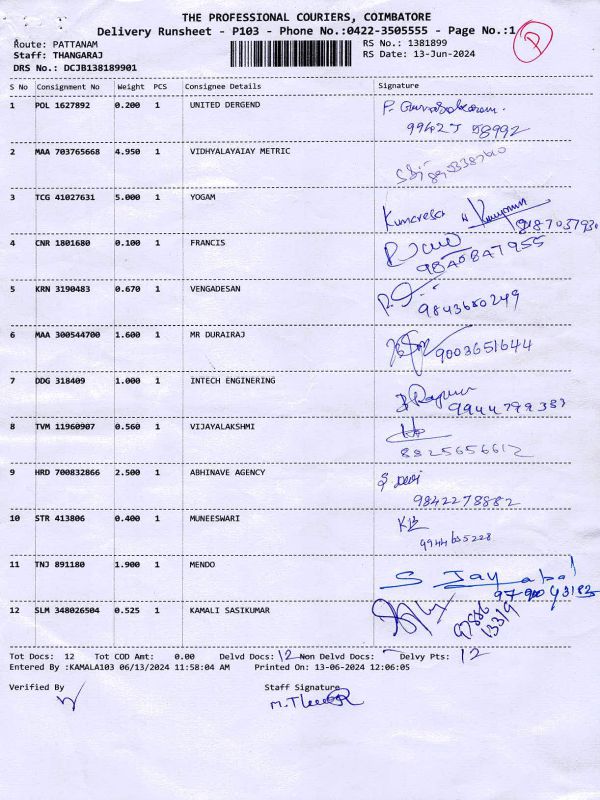 THE PROFESSIONAL COURIERS, COIMBATORE
Delivery Runsheet - P103 - Phone No.:0422-3505555 - Page No.:1
Route: PATTANAM
RS No.: 1381899
Staff: THANGARAJ
RS Date: 13-Jun-2024
DRS No.: DCJB138189901
S No Consignment No Weight PCS Consignee Details Signature
1 POL 1627892 0.200 1 UNITED DERGEND
2 MAA 703765668 4.950 1 VIDHYALAYAIAY METRIC
3 TCG 41027631 5.000 1 YOGAM
4 CNR 1801680 0.100 1 FRANCIS
9840847955
5 KRN 3190483 0.670 1 VENGADESAN
9843680249
6 MAA 300544700 1.600 1 MR DURAIRAJ
9003651644
7 DDG 318409 1.000 1 INTECH ENGINERING
8 TVM 11960907 0.560 1 VIJAYALAKSHMI
8825656612
9 HRD 700832866 2.500 1 ABHINAVE AGENCY
S Devi
9842278882
10 STR 413806 0.400 1 MUNEESWARI
11 TNJ 891180 1.900 1 MENDO
S Jayabal
12 SLM 348026504 0.525 1 KAMALI SASIKUMAR
97886
13319
Tot Docs: 12 Tot COD Amt: 0.00 Delvd Docs: 12 Non Delvd Docs: Delvy Pts: 12
Entered By :KAMALA103 06/13/2024 11:58:04 AM Printed On: 13-06-2024 12:06:05
Verified By Staff Signature